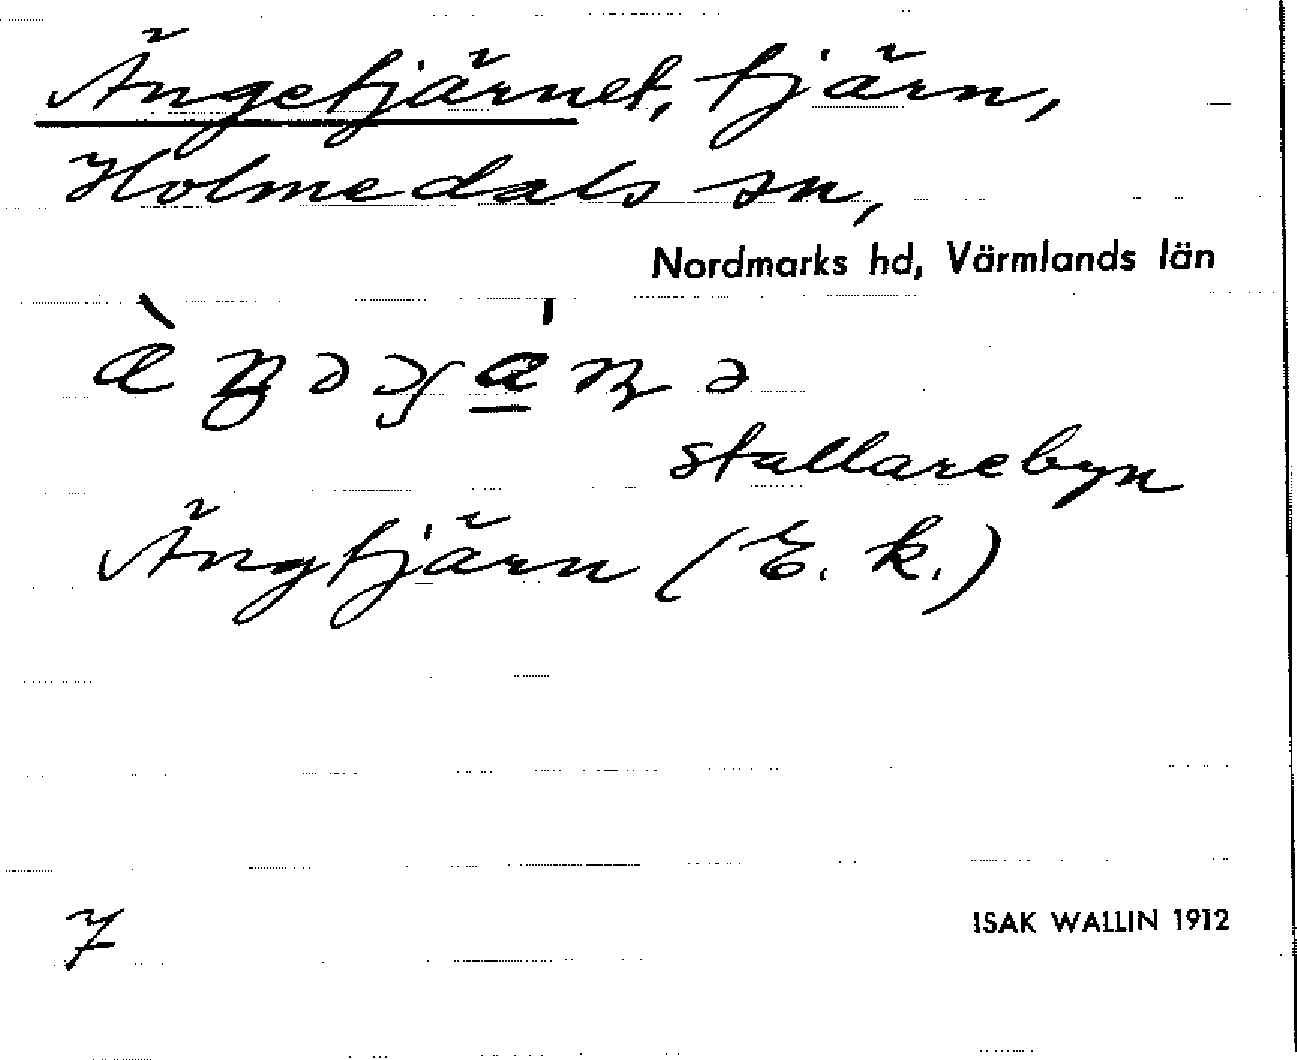 Ängetjärnet, tjärn,
Holmedals sn,
Nordmarks hd, Värmlands län
stallarebyn
Ängtjärn (E. k.)
7
ISAK WALLIN 1912